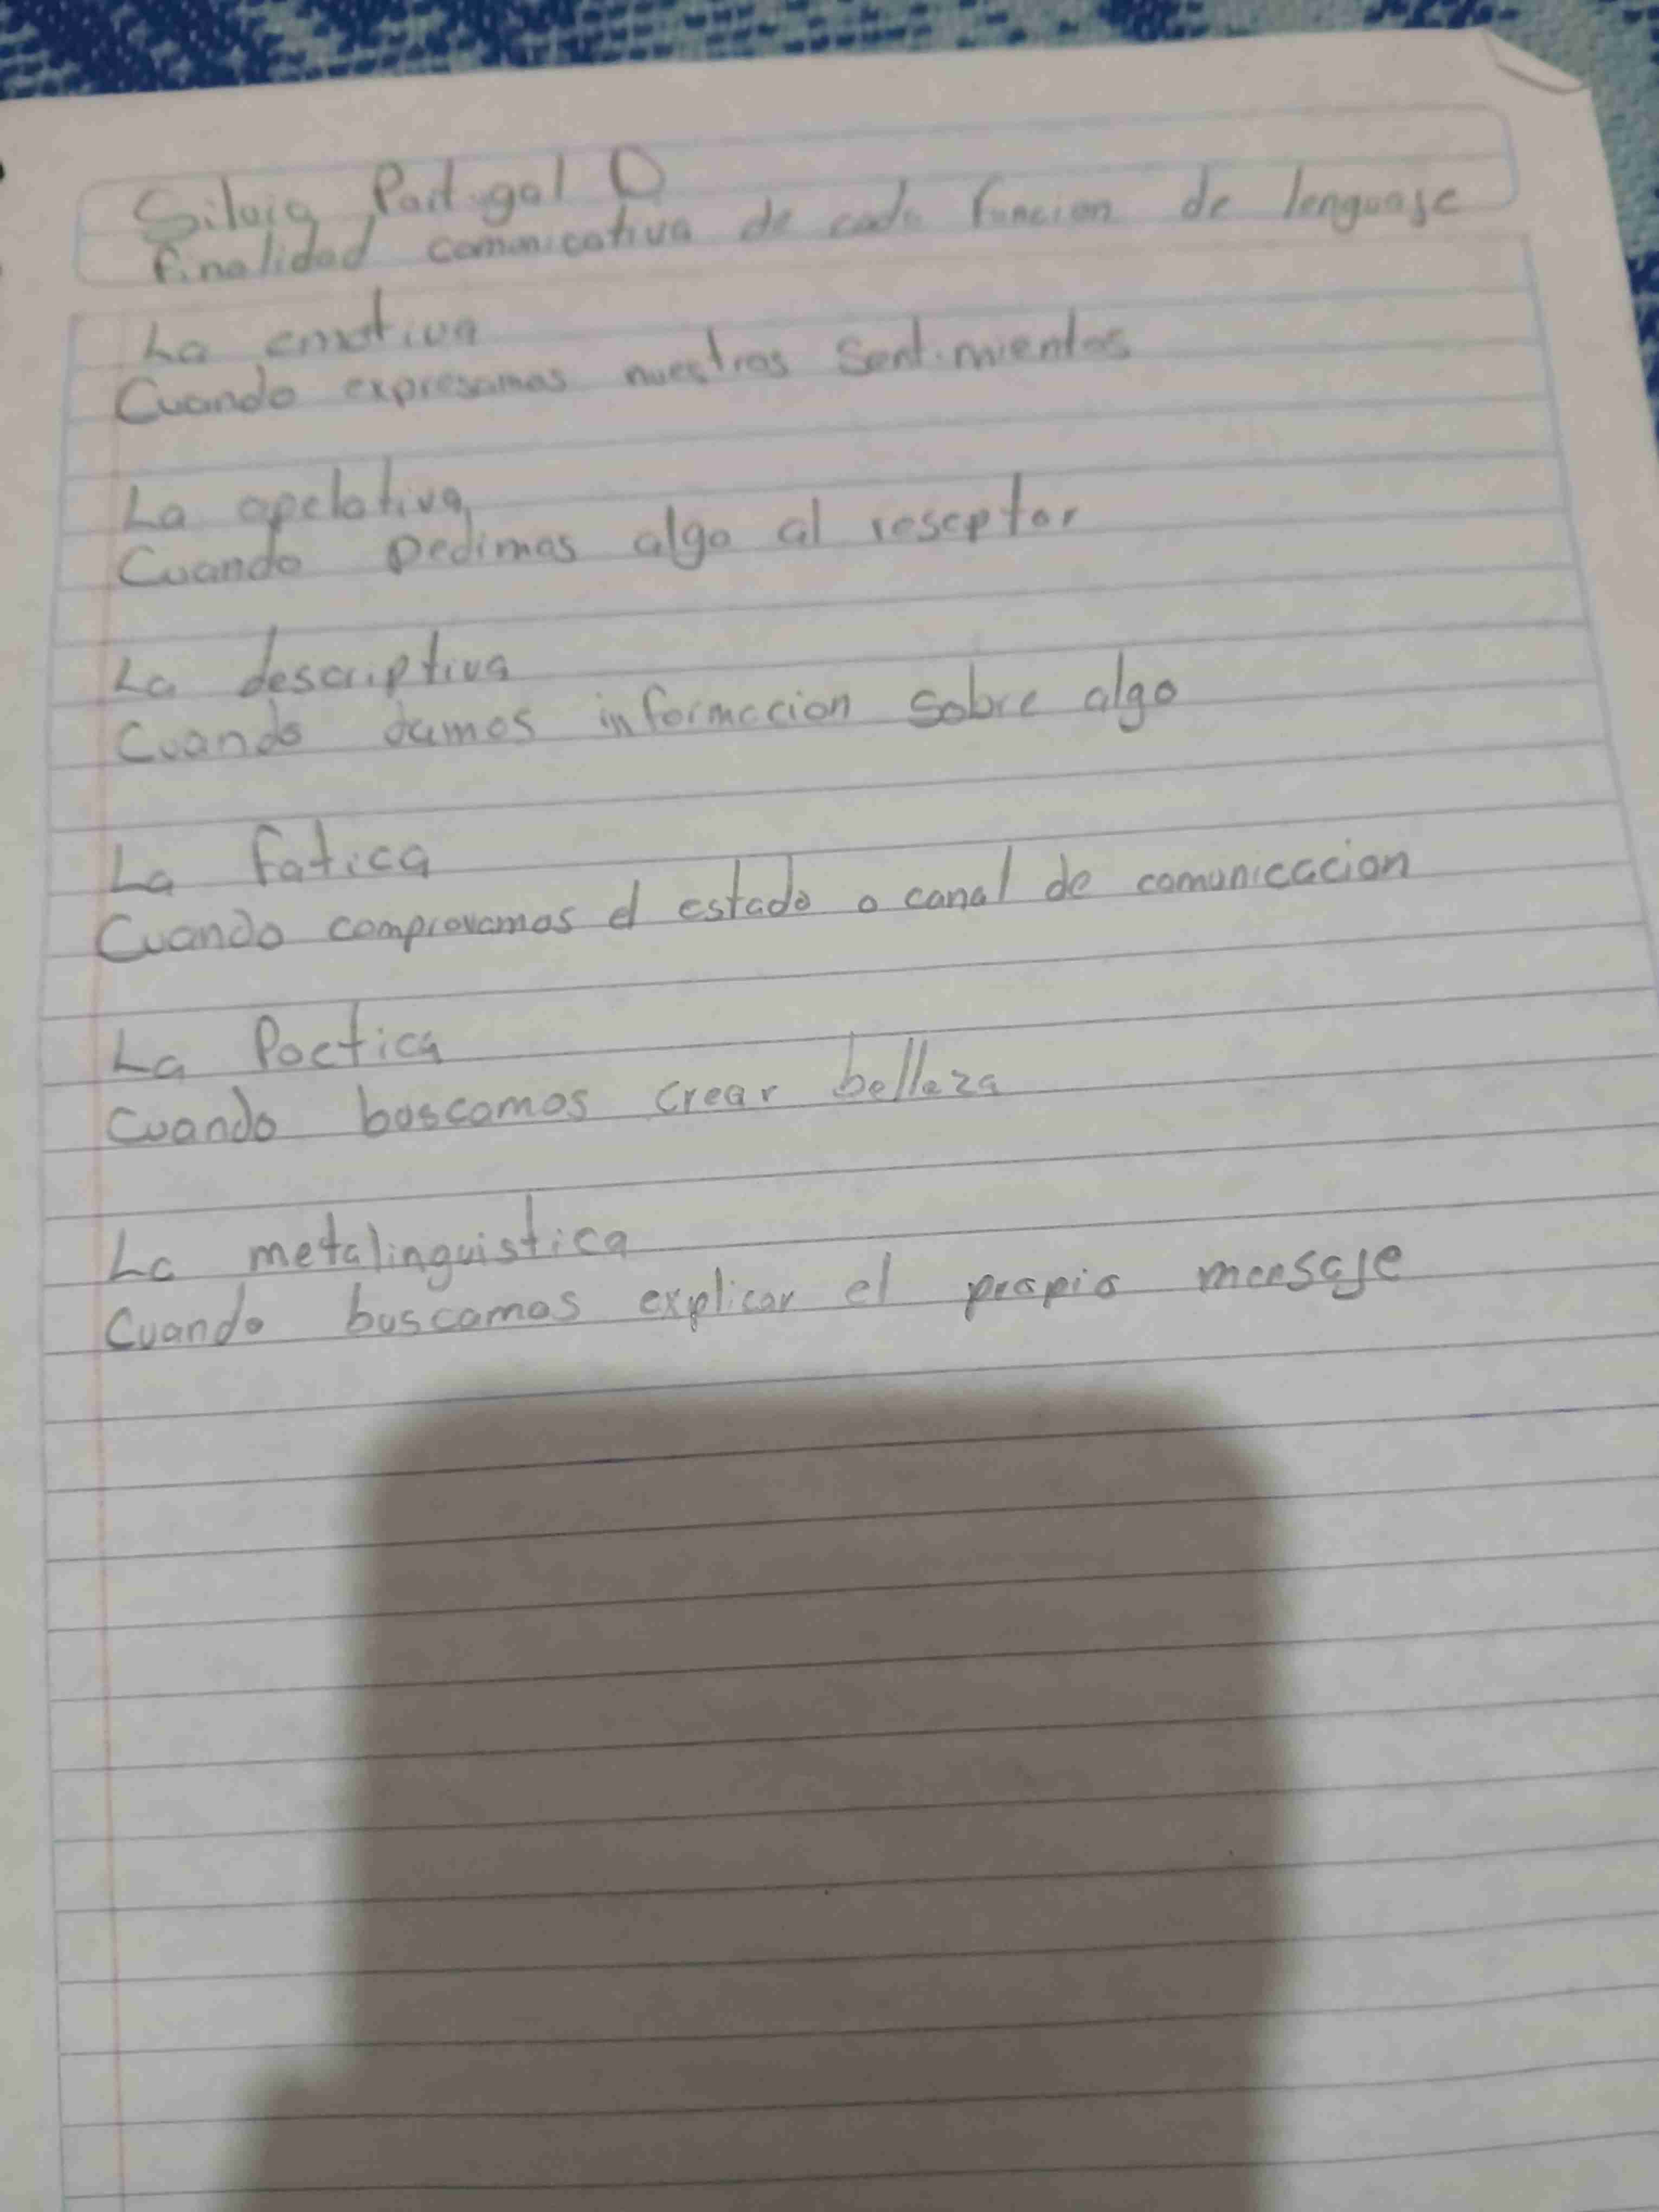 Silvia Portugal O
finalidad comunicativa de cada funcion de lenguaje
La emotiva
Cuando expresamos nuestros sentimientos
La apelativa
Cuando pedimos algo al reseptor
La descriptiva
Cuando damos informacion sobre algo
La fatica
Cuando comprovamos el estado o canal de comunicacion
La Poetica
Cuando buscamos crear belleza
La metalinguistica
Cuando buscamos explicar el propio mensaje